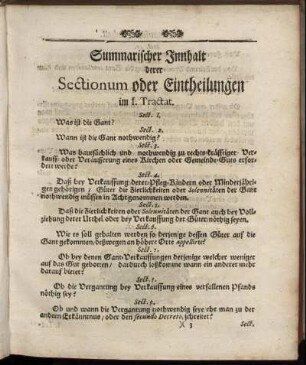 Summarischer Innhalt
derer
Sectionum oder Eintheilungen
im I. Tractat.
Sect. 1.
Was ist die Gant?
Sect. 2.
Wann ist die Gant nothwendig?
Sect. 3.
Was hauptsächlich und nothwendig zu rechtskräfftiger Ver-
kauff- oder Veräusserung eines Kirchen oder Gemeinde-Guts erfor-
dert werde?
Sect. 4.
Daß bey Verkauffung derer Pfleg-Kindern oder Minderjähri-
gen gehörigen Güter die Zierlichkeiten oder Solennitäten der Gant
nothwendig müssen in Acht genommen werden.
Sect. 5.
Daß die Zierlichkeiten oder Solennitäten der Gant auch bey Voll-
ziehung derer Urthel oder bey Verkauffung der Güter nöthig seyen.
Sect. 6.
Wie es soll gehalten werden so derjenige dessen Güter auf die
Gant gekommen deßwegen an höhere Orte appellirte?
Sect. 7.
Ob bey denen Gant-Verkauffungen derjenige welcher weniger
auf das Gut gebotten / dardurch loßkomme wann ein anderer mehr
darauf bietet?
Sect. 8.
Ob die Vergantung bey Verkauffung eines verfallenen Pfands
nöthig sey?
Sect. 9.
Ob und wann die Vergantung nothwendig seye ehe man zu der
andern Erkänntnus / oder den secundo Decreto, schreitet?
Sect.